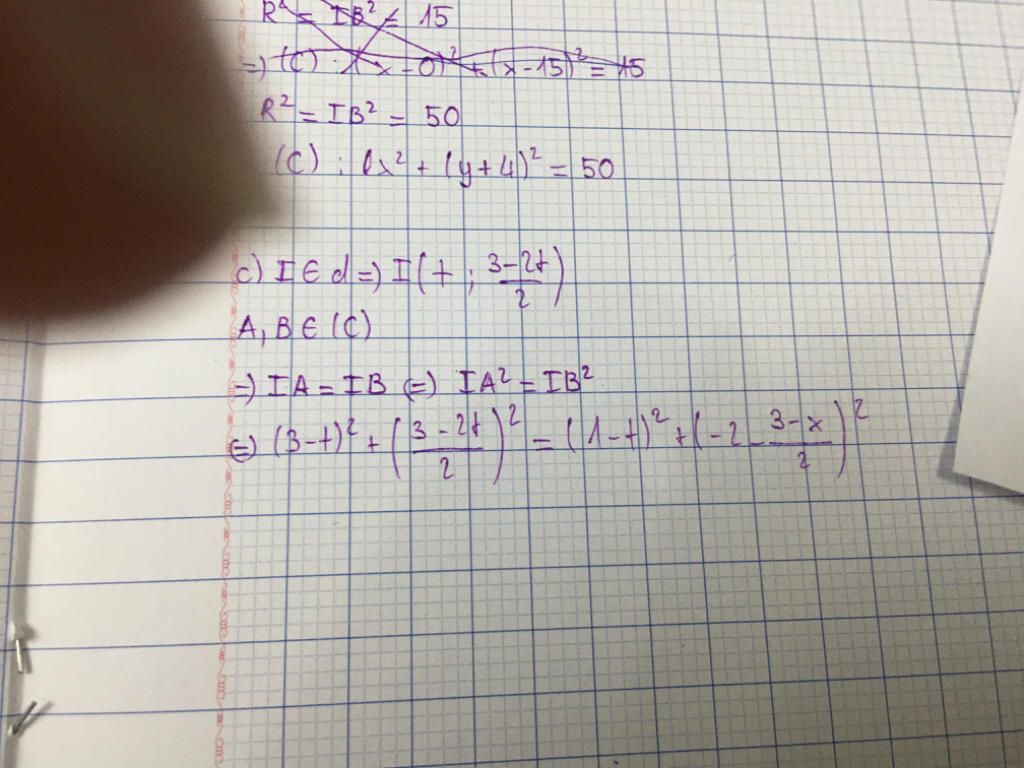 R² = IB² = 15
=) (C) : (x-0)² + (x-15)² = 15
R² = IB² = 50
(C) : (x² + (y+4)² = 50
c) I ∈ d =) I(t ; \frac{3-2t}{2})
A, B ∈ (C)
=) IA = IB (=) IA² = IB²
(=) (3-t)² + (\frac{3-2t}{2})² = (1-t)² + (-2 - \frac{3-x}{2})²